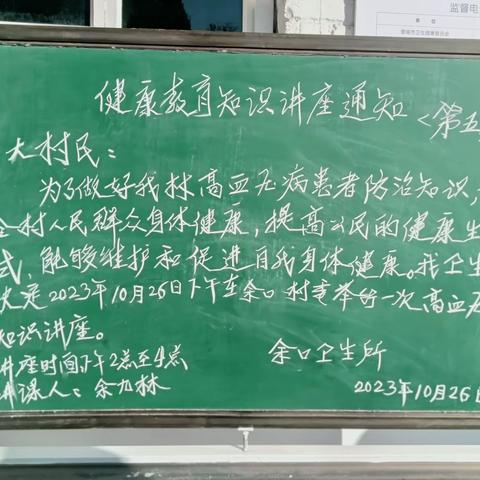 监督电
单位
健康教育知识讲座通知<第五
大村民：
为了做好我村高血压病患者防治知识，
全村人民群众身体健康，提高公民的健康生
式，能够维护和促进自我身体健康。我卫生
决定2023年10月26日下午在余口村委举行一次高血压
知识讲座。
讲座时间下午2点至4点
讲课人：余力林
余口卫生所
2023年10月26日